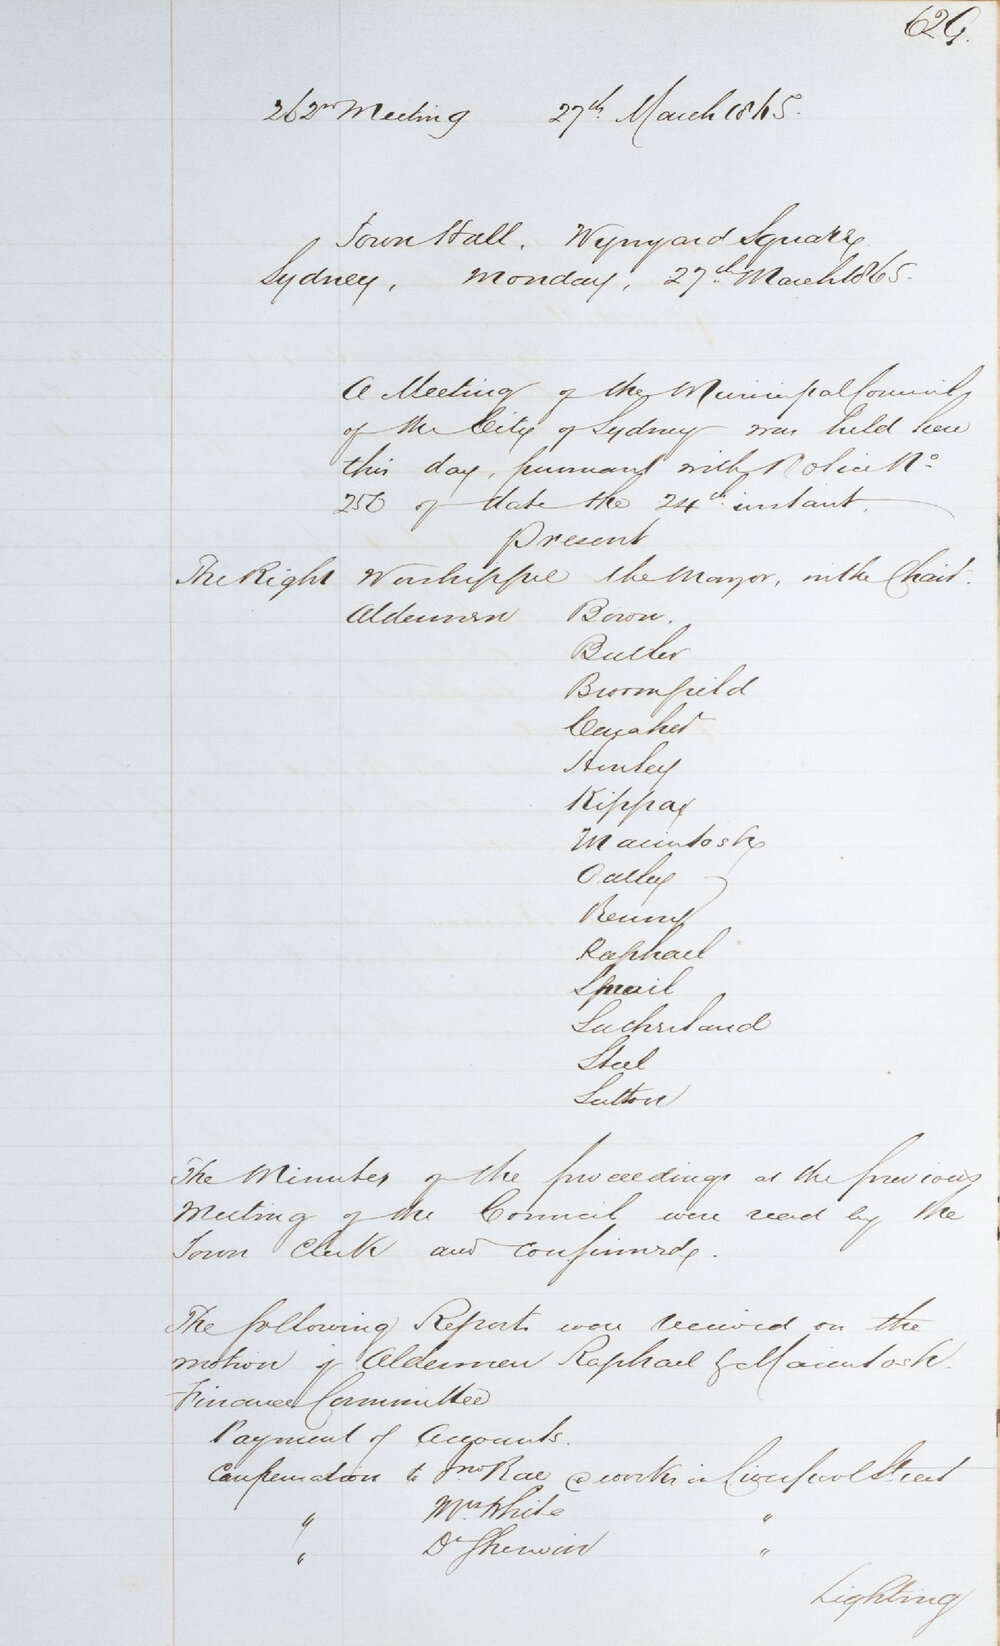 629.
262nd Meeting 27th March 1865.
Town Hall. Wynyard Square
Sydney, Monday, 27th March 1865.
A Meeting of the Municipal Council
of the City of Sydney was held here
this day, pursuant with Notice No
250 of date the 24th instant.
Present
The Right Worshipful the Mayor, in the Chair.
Aldermen Bown.
Butler
Broomfield
Caraher
Hurley
Kippax
Macintosh
Oatley
Renny
Raphael
Speer
Sutherland
Steel
Sutton
The Minutes of the proceedings at the previous
Meeting of the Council were read by the
Town Clerk and confirmed.
The following Reports were received on the
motion of Aldermen Raphael & Macintosh.
Finance Committee
Payment of Accounts.
Compensation to Mr Rae @ works in Liverpool Street
" Mrs White "
" Dr Sherwin "
Lighting